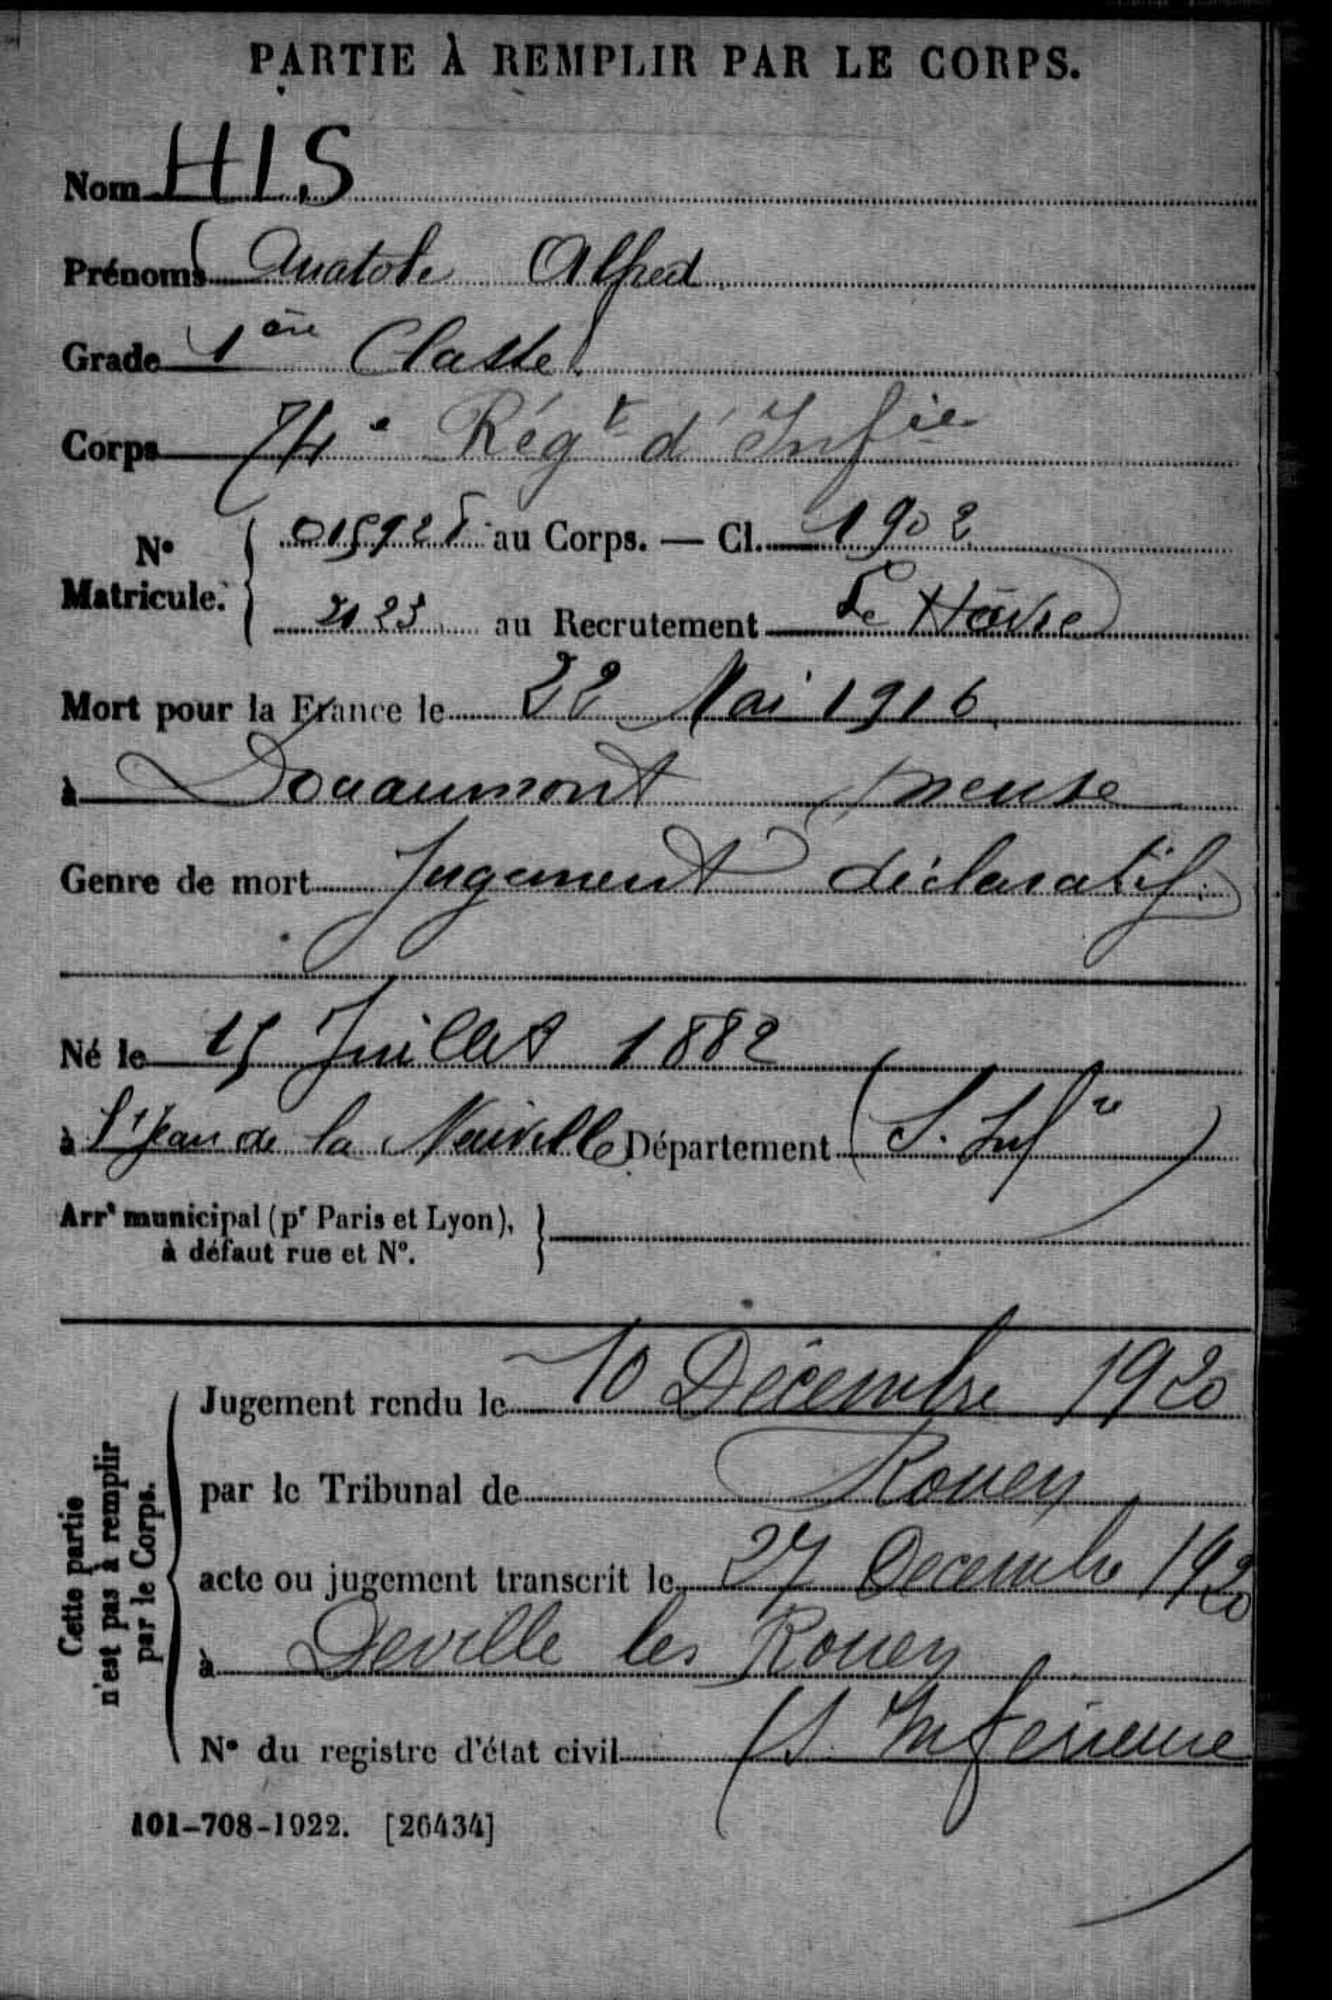 PARTIE À REMPLIR PAR LE CORPS.
Nom HIS
Prénoms Anatole Alfred
Grade 1ère Classe
Corps 74e Régt d'Infie
No Matricule. 015925 au Corps. — Cl. 1902
2123 au Recrutement Le Hâvre
Mort pour la France le 22 Mai 1916
à Douaumont Meuse
Genre de mort Jugement déclaratif
Né le 15 Juillet 1882
à St Jean de la Neuville Département (S. Infre)
Arrt municipal (pr Paris et Lyon),
à défaut rue et No.
Cette partie
n'est pas à remplir
par le Corps.
Jugement rendu le 10 Décembre 1920
par le Tribunal de Rouen
acte ou jugement transcrit le 27 Decembre 1920
à Deville les Rouen
No du registre d'état civil (S. Inferieure
101-708-1922. [26434]